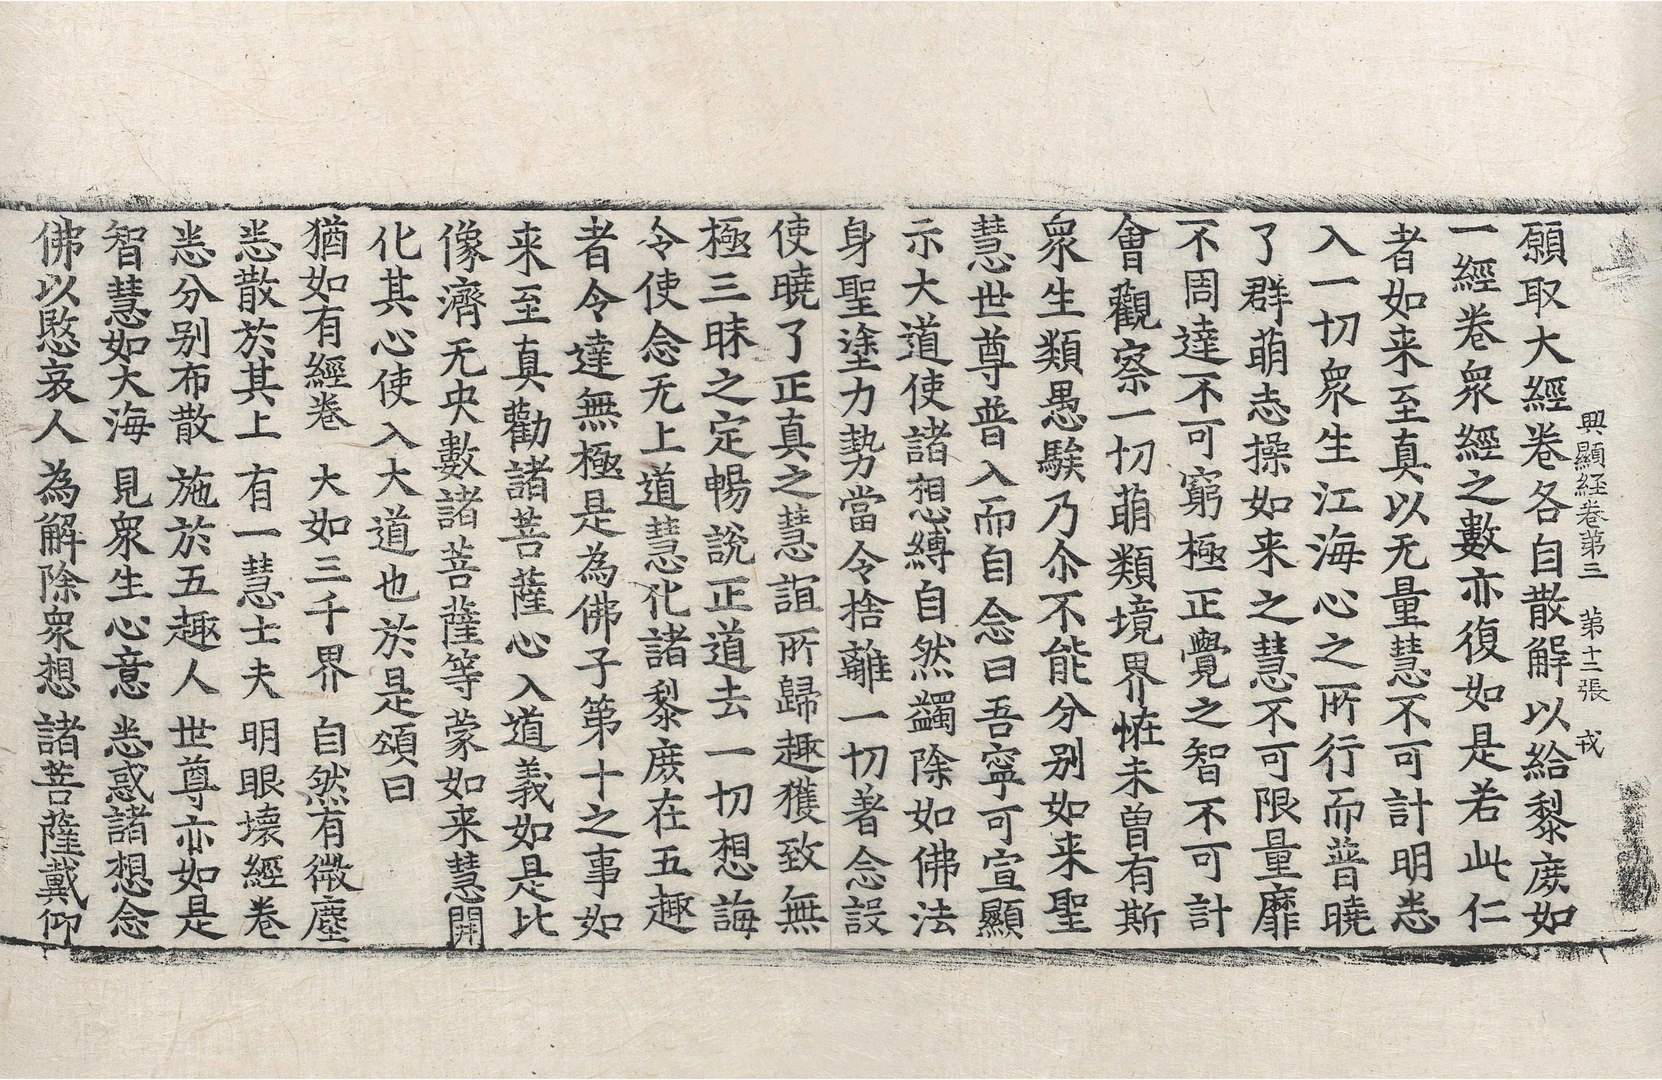 興顯經卷第三　第十二張　戎
願取大經卷各自散解以給黎庶如
一經卷衆經之數亦復如是若此仁
者如来至真以无量慧不可計明悉
入一切衆生江海心之所行而普曉
了群萌志操如来之慧不可限量靡
不周達不可窮極正覺之智不可計
會觀察一切萌類境界恠未曾有斯
衆生類愚騃乃尒不能分別如来聖
慧世尊普入而自念曰吾寧可宣顯
示大道使諸想縛自然蠲除如佛法
身聖塗力勢當令捨離一切著念設
使曉了正真之慧誼所歸趣獲致無
極三昧之定暢說正道去一切想誨
令使念无上道慧化諸黎庶在五趣
者令達無極是為佛子第十之事如
来至真勸諸菩薩心入道義如是比
像濟无央數諸菩薩等蒙如来慧開
化其心使入大道也於是頌曰
猶如有經卷　大如三千界　自然有微塵
悉散於其上　有一慧士夫　明眼壞經卷
悉分別布散　施於五趣人　世尊亦如是
智慧如大海　見衆生心意　悉惑諸想念
佛以愍哀人　為解除衆想　諸菩薩戴仰